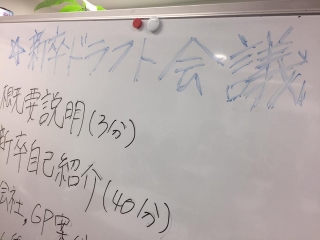 ☆新卒ドラフト会議
概要説明(3分)
新卒自己紹介(40分)
会社,GP案